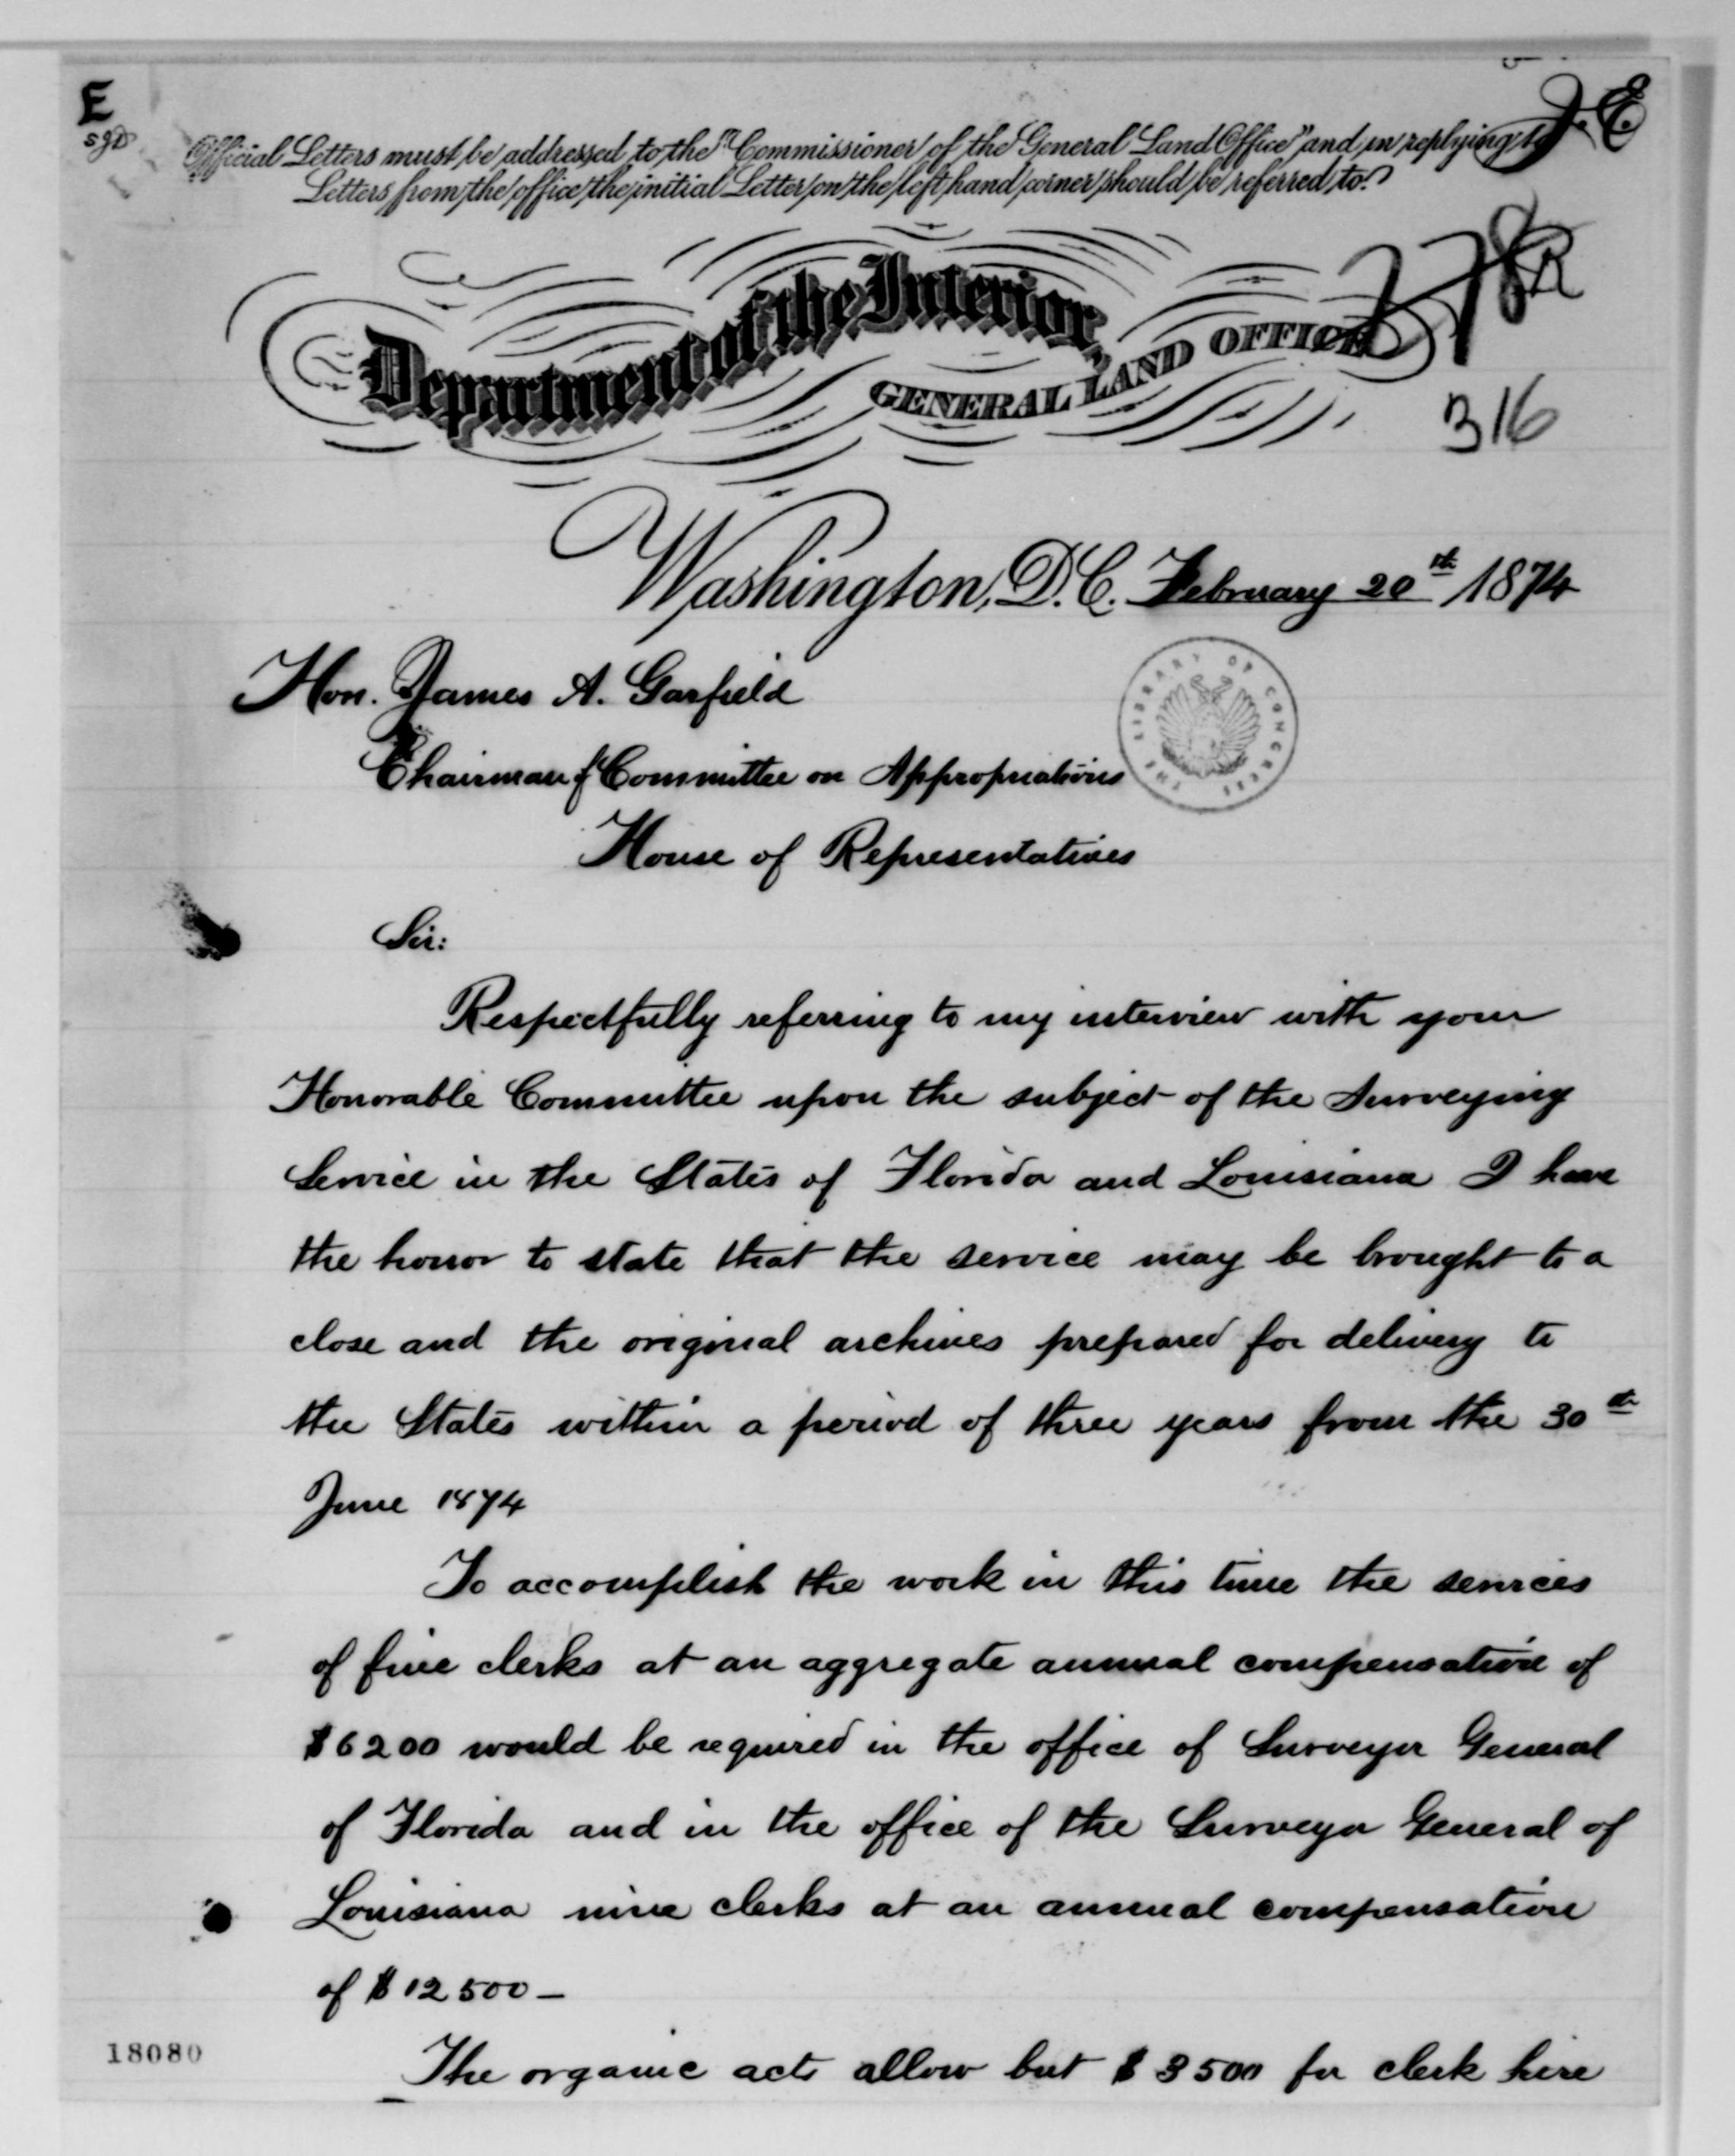 E
J. E.
Official Letters must be addressed to the "Commissioner of the General Land Office" and in replying to
Letters from the office the initial Letter on the left hand corner should be referred to.
Department of the Interior,
GENERAL LAND OFFICE
316
Washington, D.C. February 20th 1874
Hon. James A. Garfield
Chairman of Committee on Appropriations
House of Representatives
THE LIBRARY OF CONGRESS
Sir:
Respectfully referring to my interview with your
Honorable Committee upon the subject of the Surveying
Service in the States of Florida and Louisiana I have
the honor to state that the service may be brought to a
close and the original archives prepared for delivery to
the States within a period of three years from the 30th
June 1874
To accomplish the work in this time the services
of five clerks at an aggregate annual compensation of
$6200 would be required in the office of Surveyor General
of Florida and in the office of the Surveyor General of
Louisiana nine clerks at an annual compensation
of $12500—
The organic acts allow but $3500 for clerk hire
18080